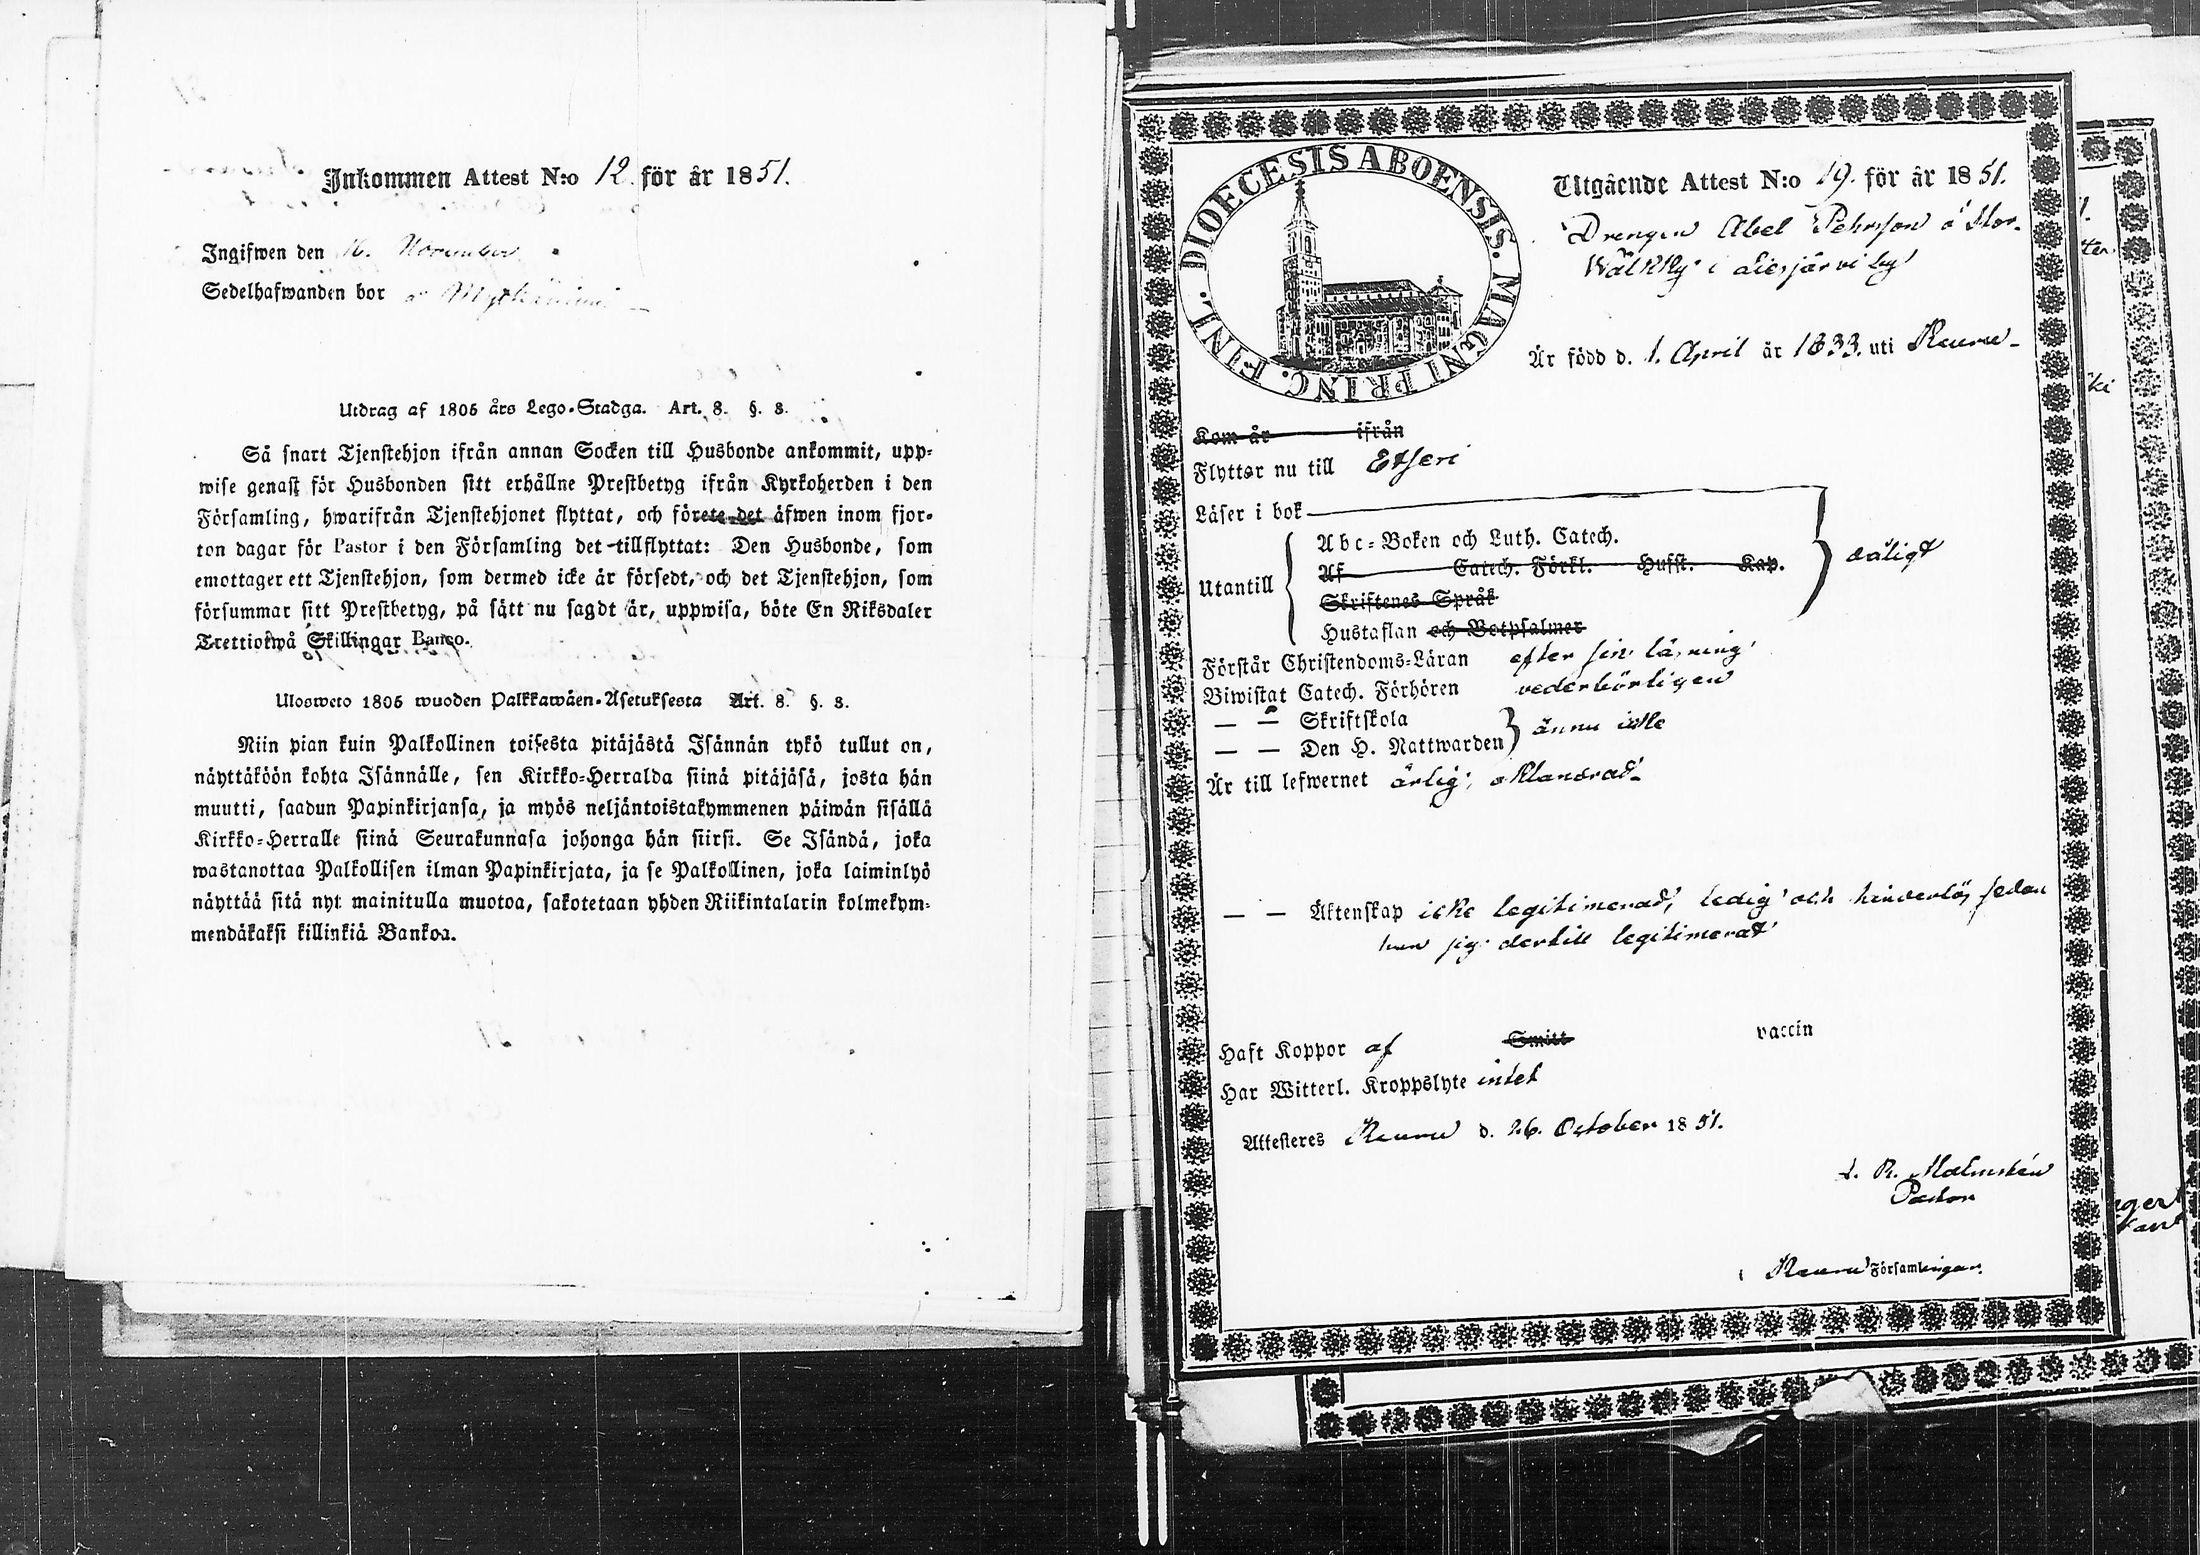 Inkommen Attest N:o 12 för år 1851.
Ingifwen den 16. November
Sedelhafwanden bor å
Utdrag af 1805 års Lego-Stadga. Art. 8. §. 8.
Så snart Tjenstehjon ifrån annan Socken till Husbonde ankommit, upp-
wise genast för Husbonden sitt erhållne Prestbetyg ifrån Kyrkoherden i den
Församling, hwarifrån Tjenstehjonet flyttat, och förete det äfwen inom fjor-
ton dagar för Pastor i den Församling det tillflyttat: Den Husbonde, som
emottager ett Tjenstehjon, som dermed icke är försedt, och det Tjenstehjon, som
försummar sitt Prestbetyg, på sätt nu sagdt är, uppwisa, böte En Riksdaler
Trettiotwå Skillingar Banco.
Ulosweto 1805 wuoden Palkkawäen-Asetuksesta Art. 8. §. 8.
Niin pian kuin Palkollinen toisesta pitäjästä Isännän tykö tullut on,
näyttäköön kohta Isännälle, sen Kirkko-Herralda siinä pitäjäsä, josta hän
muutti, saadun Papinkirjansa, ja myös neljäntoistakymmenen päiwän sisällä
Kirkko-Herralle siinä Seurakunnasa johonga hän siirsi. Se Isändä, joka
wastanottaa Palkollisen ilman Papinkirjata, ja se Palkollinen, joka laiminlyö
näyttää sitä nyt mainitulla muotoa, sakotetaan yhden Riikintalarin kolmekym-
mendäkaksi killinkiä Bankoa.
DIOECESIS ABOENSIS. MAGNI PRINC. FINL.
Utgående Attest N:o 19. för år 1851.
Drengen Abel Pehrsson å Stor-
Wälkky i Liesjärvi by
Är född d. 1. April år 1833. uti Keuru
Kom år ifrån
Flyttar nu till Etseri
Läser i bok
Utantill
Abc-Boken och Luth. Catech.
Af Catech. Förkl. Hufst. Kap.
Skriftenes Språk
Hustaflan och Botpsalmer
dåligt
Förstår Christendoms-Läran efter sin läsning
Biwistat Catech. Förhören vederbörligen
— — Skriftskola
— — Den H. Nattwarden
ännu icke
Är till lefwernet ärlig, oklandrad
— — Äktenskap icke legitimerad, ledig och hinderlös sedan
han sig dertill legitimerat
Haft Koppor af Smitt vaccin
Har Witterl. Kroppslyte intet
Attesteres Keuru d. 26. October 1851.
R. Malmstén
Pastor
i Keuru Församlingar.